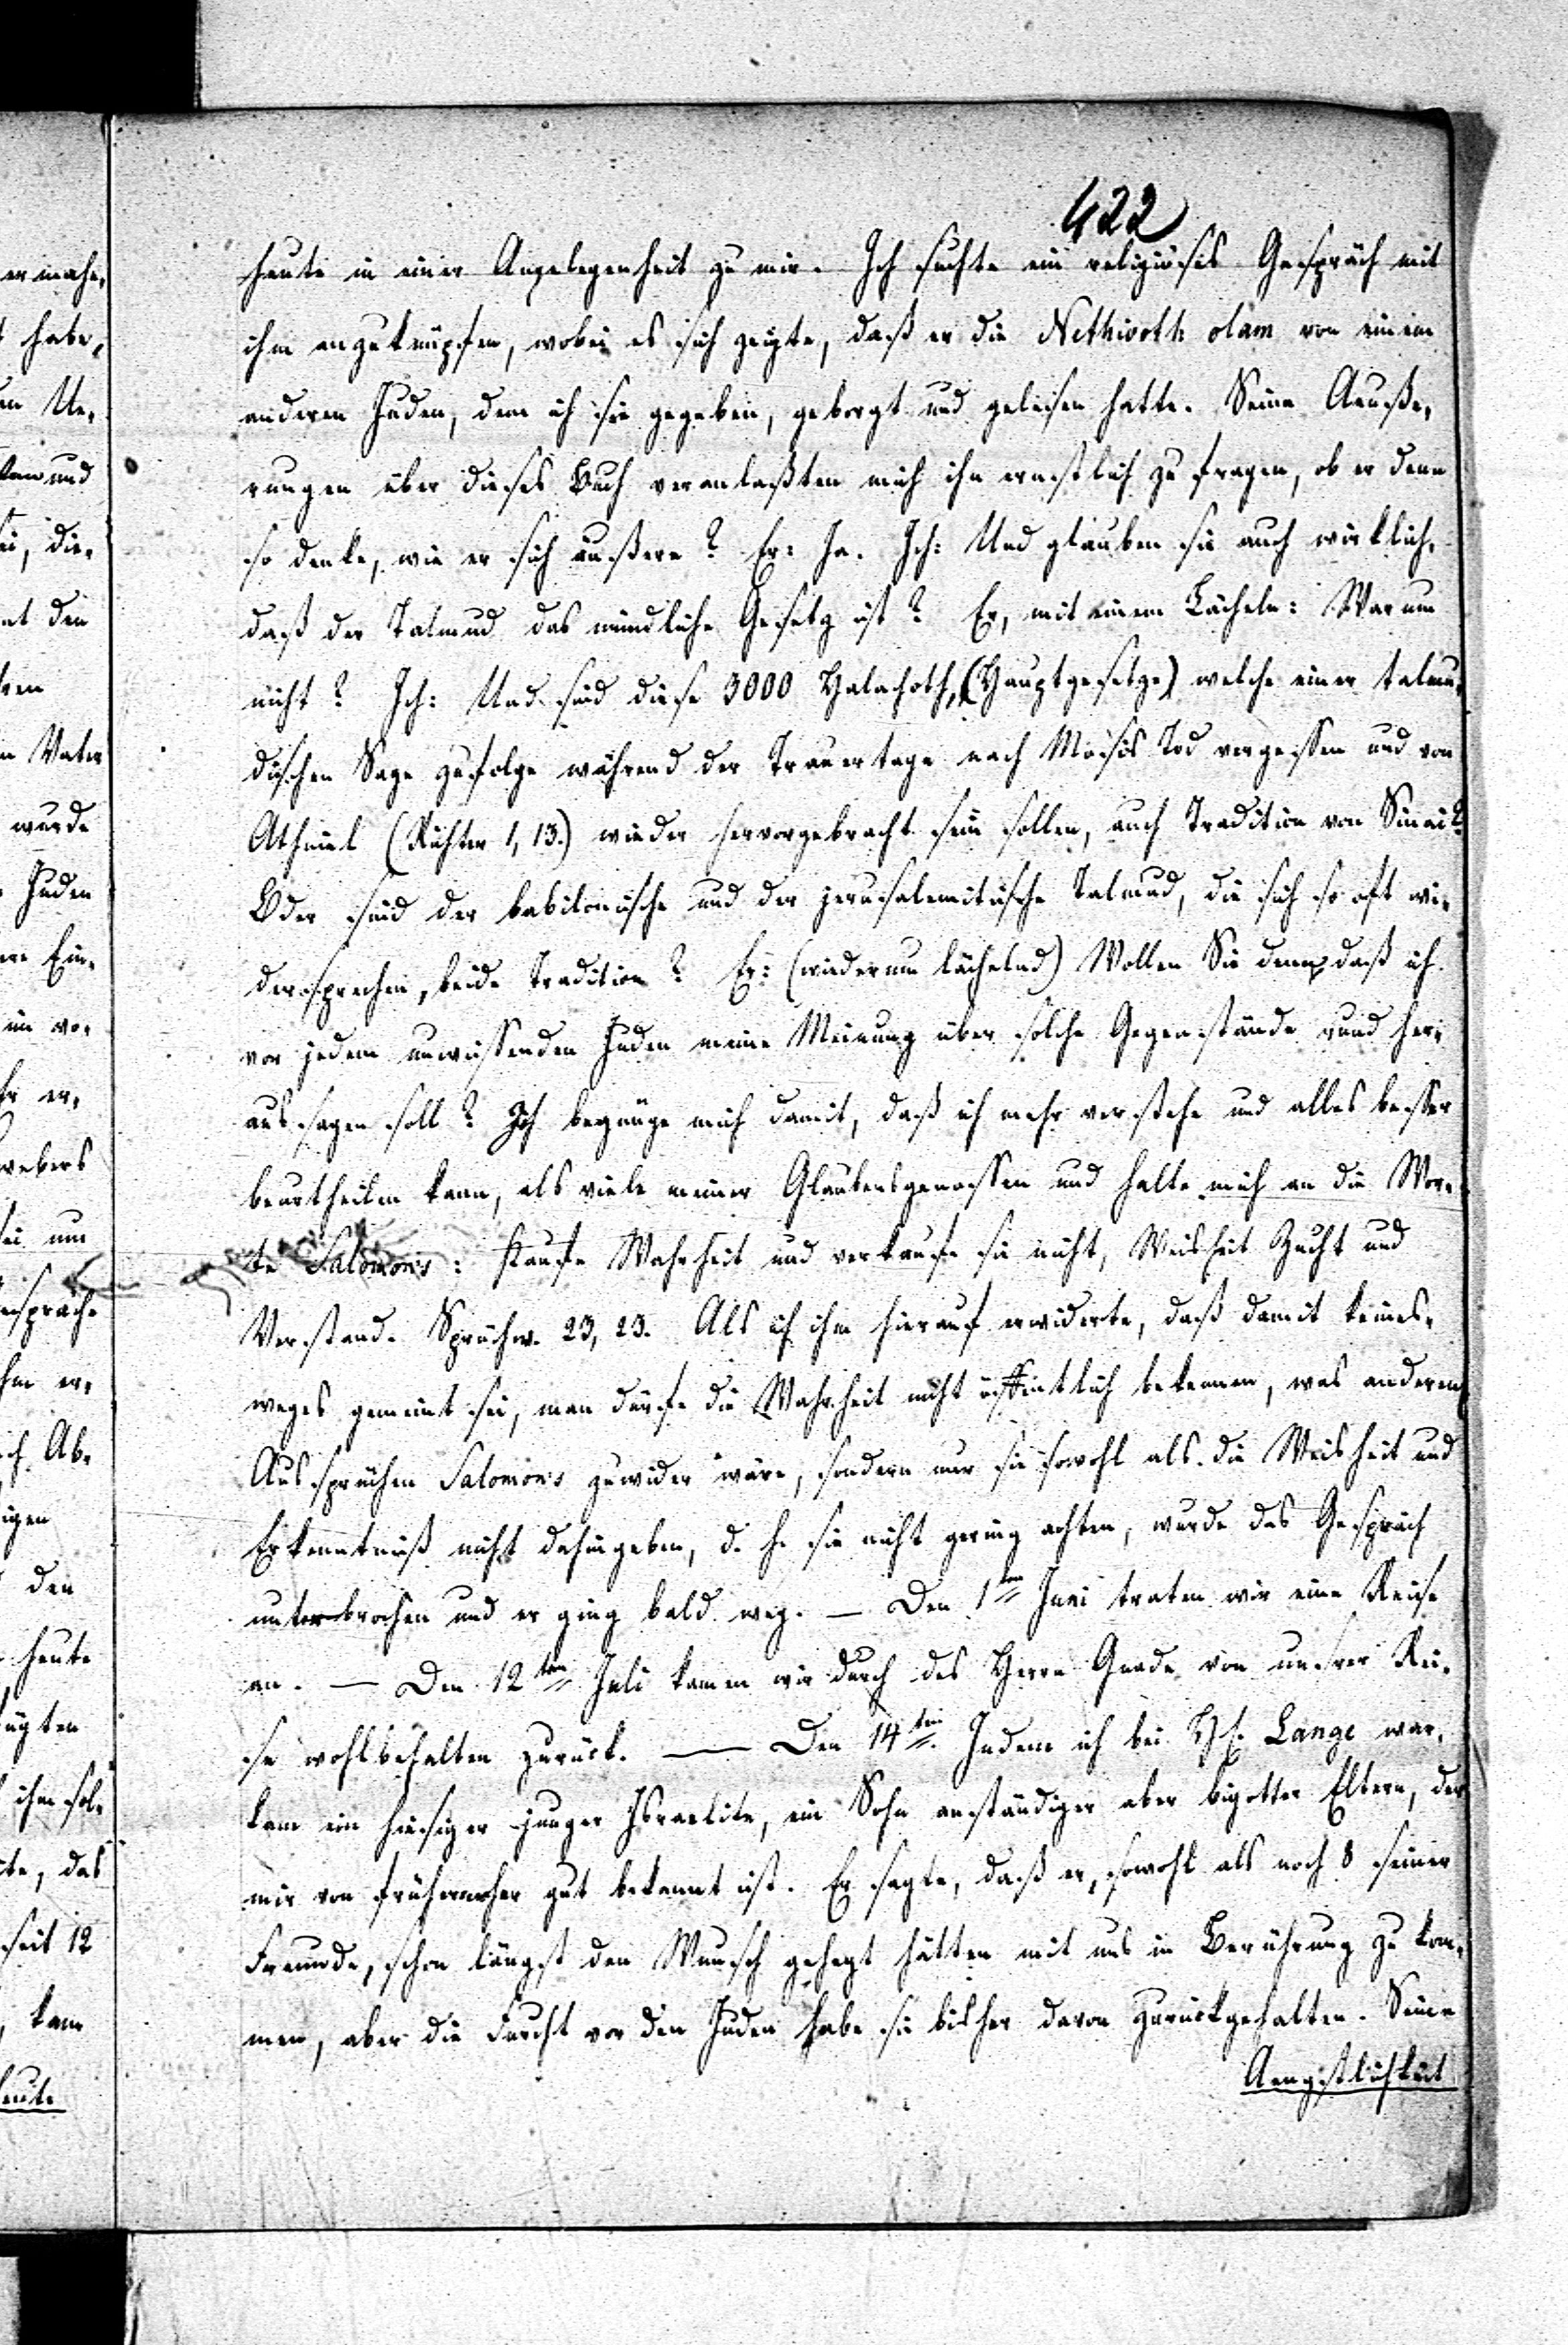 422
heute in einer Angelegenheit zu mir. Ich suchte ein religiöses Gespräch mit
ihm anzuknüpfen, wobei es sich zeigte, daß er die Nethivoth olam von einem
anderen Juden, dem ich sie gegeben, geborgt und gelesen hatte. Seine Aeuße-
rungen über dieses Buch veranlaßten mich ihn ernstlich zu fragen, ob er denn
so denke, wie er sich äußere? Er: Ja. Ich: Und glauben sie auch wirklich,
daß der Talmud das mündliche Gesetz ist? Er, mit einem Lächeln: Warum
nicht? Ich: Und sind diese 3000 Halachoth, (Hauptgesetze) welche einer talmu-
dischen Sage zufolge während der Trauertage nach Mosis Tod vergessen und von
Athniel (Richter 1, 13.) wieder hervorgebracht sein sollen, auch Tradition von Sinai?
Oder sind der babilonische und der jerusalemitische Talmud, die sich so oft wi-
dersprechen, beide Tradition? Er: (wiederum lächelnd) Wollen Sie denn, daß ich
vor jedem unwissenden Juden meine Meinung über solche Gegenstände rund her-
aus sagen soll? Ich begnüge mich damit, daß ich mehr verstehe und alles besser
beurtheilen kann, als viele meiner Glaubensgenossen und halte mich an die Wor-
te Salomon's: Kaufe Wahrheit und verkaufe sie nicht, Weisheit Zucht und
Verstand. Sprüchw. 23, 23. Als ich ihm hierauf erwiderte, daß damit keines-
weges gemeint sei, man dürfe die Wahrheit nicht öffentlich bekennen, was anderen
Aussprüchen Salomon's zuwider wäre, sondern nur sie sowohl als die Weisheit und
Erkenntniß nicht dahingeben, d. h. sie nicht gering achten, wurde das Gespräch
unterbrochen und er ging bald weg. — Den 1ten Juni traten wir eine Reise
an. — Den 12ten Juli kamen wir durch des Herrn Gnade von unsrer Rei-
se wohlbehalten zurück. — Den 14ten. Indem ich bei H. Lange war,
kam ein hiesiger junger Israelite, ein Sohn anständiger aber bigotter Eltern, der
mir von früherher gut bekannt ist. Er sagte, daß er, sowohl als noch 8 seiner
Freunde, schon längst den Wunsch gehegt hätten mit uns in Berührung zu kom-
men, aber die Furcht vor den Juden habe sie bisher davon zurückgehalten. Seine
Aengstlichkeit